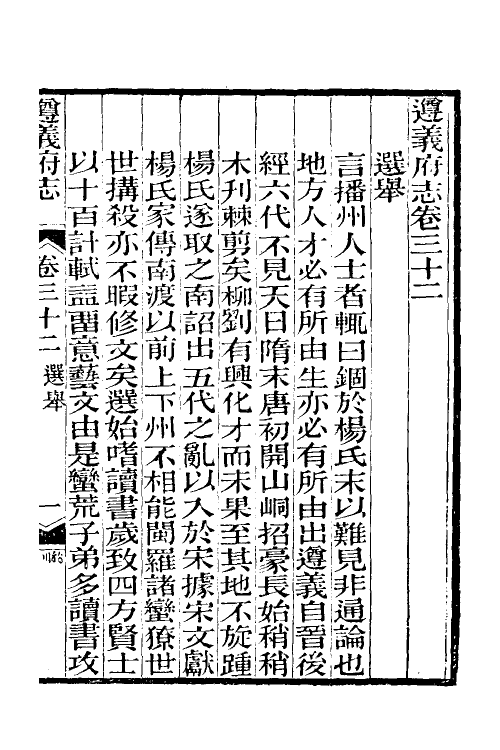 遵義府志卷三十二
選舉
言播州人士者輒曰錮於楊氏末以難見非通論也
地方人才必有所由生亦必有所由出遵義自晉後
經六代不見天日隋末唐初開山峒招豪長始稍稍
木刋棘剪矣柳劉有興化才而未果至其地不旋踵
楊氏遂取之南詔出五代之亂以入於宋據宋文獻
楊氏家傳南渡以前上下州不相能閩羅諸蠻獠世
世搆殺亦不暇修文矣選始嗜讀書歲致四方賢士
以十百計軾益留意藝文由是蠻荒子弟多讀書攻
遵義府志
卷三十二 選舉
一